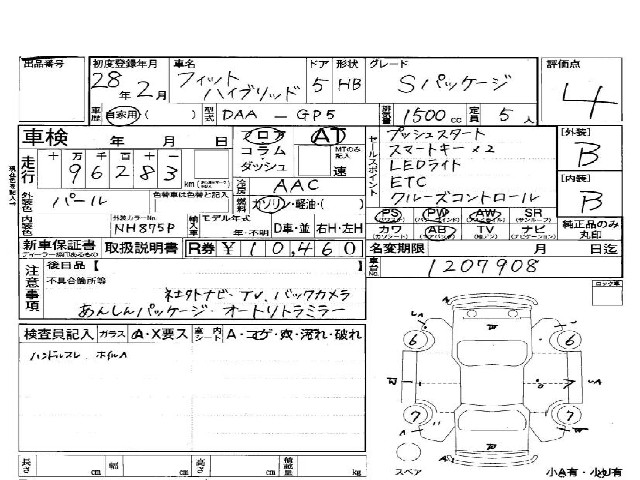 出品番号
初度登録年月 車名 ドア 形状 グレード 評価点
28年2月 フィット ハイブリッド 5 HB Sパッケージ 4
車歴 自家用 ( ) 型式 DAA-GP5 排気量 1500cc 定員 5人
車検 年 月 日
フロア コラム・ダッシュ
AT
MTのみ記入
速
セールスポイント
プッシュスタート
スマートキー×2
LEDライト
ETC
クルーズコントロール
[外装]
B
[内装]
B
走行 十万千百十一
96283 km
冷房 AAC
外装色 パール
色替車は色替と記入
燃料 ガソリン・軽油・( )
内装色
外装カラーNo.
NH875P
輸入車 モデル年式 年・不明 D車・並 右H・左H
PS PW AW SR
(パワステ) (パワーウインド) (サンルーフ)
カワ AB TV ナビ
(エアバッグ) (ナビゲーション)
純正品のみ丸印
新車保証書 取扱説明書 R券 ¥10,460 名変期限 月 日迄
ディーラー捺印あるもの
注意事項 後日品【 】
車台No. 1207908
不具合箇所等
社外ナビ・TV、バックカメラ
あんしんパッケージ・オートリトラミラー
ロック車
検査員記入 ガラス A・X要ス 車内シート A・コゲ・穴・汚れ・破れ
ハンドルスレ ホイルA
6 6
7 7
長さ cm 幅 cm 高さ cm 積載量 kg
スペア
小A有・小U有